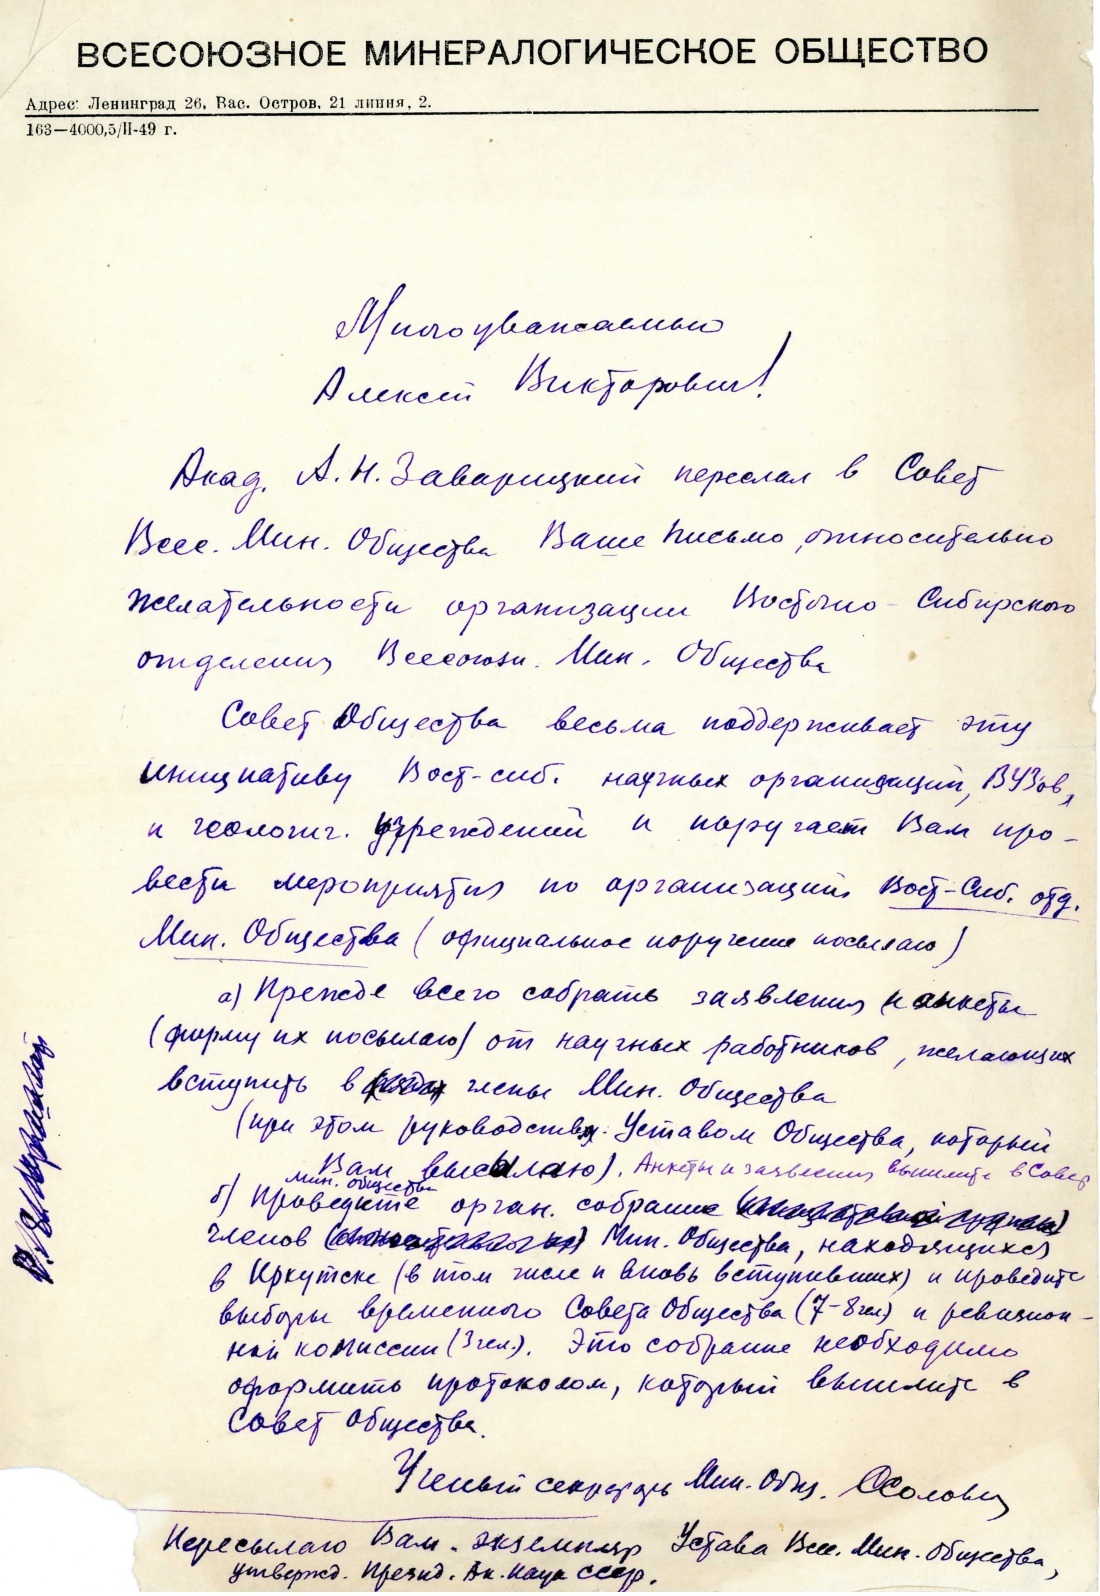 ВСЕСОЮЗНОЕ МИНЕРАЛОГИЧЕСКОЕ ОБЩЕСТВО
Адрес: Ленинград 26, Вас. Остров, 21 линия, 2.
163—4000,5/II-49 г.
Многоуважаемый
Алексей Викторович!
Акад. А.Н. Заварицкий переслал в Совет
Всес. Мин. Общества Ваше письмо, относительно
желательности организации Восточно-Сибирского
отделения Всесоюзн. Мин. Общества
Совет Общества весьма поддерживает эту
инициативу Вост-сиб. научных организаций, ВУЗов,
и геологич. учреждений и поручает Вам про-
вести мероприятия по организации Вост-Сиб. отд.
Мин. Общества (официальное поручение посылаю)
а) Прежде всего собрать заявления и анкеты
(форму их посылаю) от научных работников, желающих
вступить в члены Мин. Общества
(при этом руководств. Уставом Общества, который
Вам высылаю). Анкеты и заявления вышлите в Совет
Мин. Общества
б) Проведите орган. собрание
членов Мин. Общества, находящихся
в Иркутске (в том числе и вновь вступивших) и проведите
выборы временного Совета Общества (7-8 чел) и ревизион-
ной комиссии (3 чел.). Это собрание необходимо
оформить протоколом, который вышлите в
Совет Общества.
Ученый секретарь Мин. Общ. Соловьев
Пересылаю Вам экземпляр Устава Всес. Мин. Общества,
утвержд. Презид. Ак. Наук СССР.